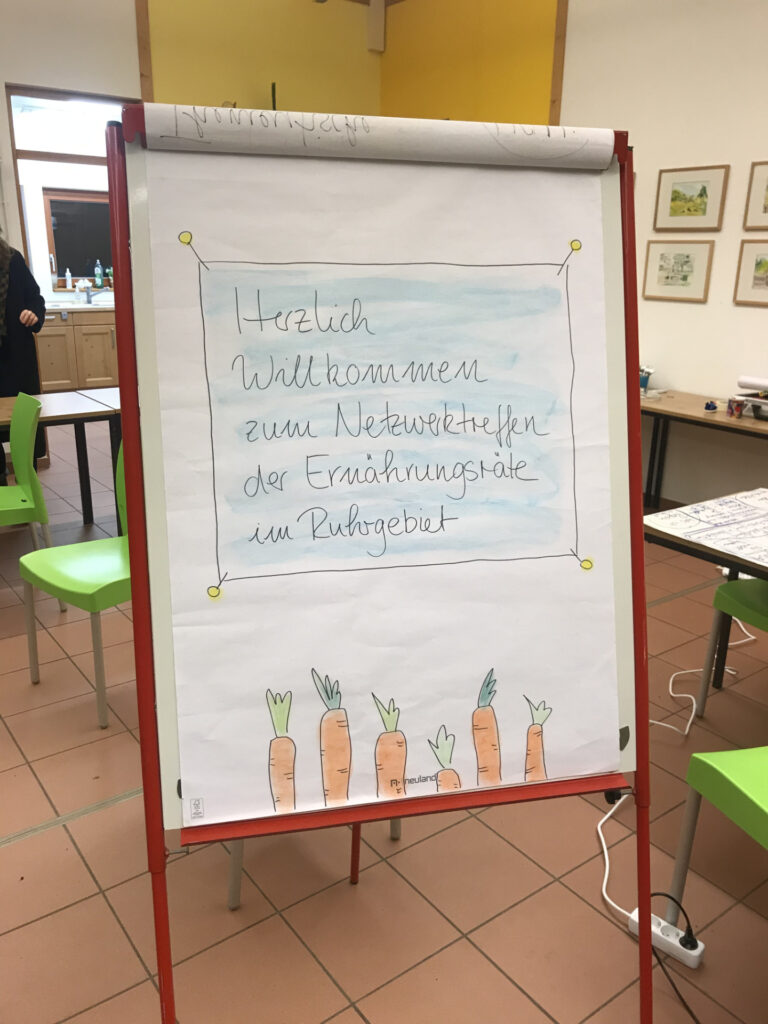 Herzlich
Willkommen
zum Netzwerktreffen
der Ernährungsräte
im Ruhrgebiet
neuland